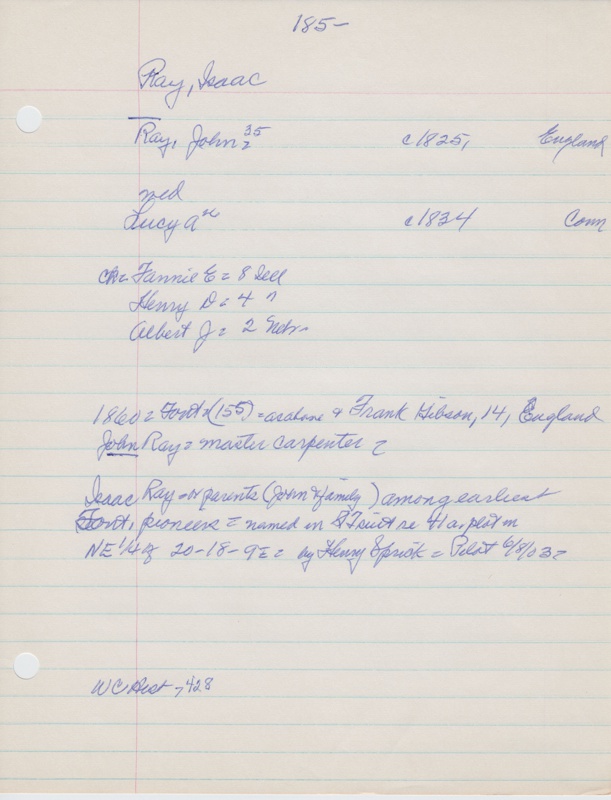 185-
Ray, Isaac
Ray, John 35 c1825, England
med
Lucy A c1834 Conn
ch = Fannie E = 8
Henry D = 4
Albert J = 2 Nebr
1860 = Font (155) = as above & Frank Gibson, 14, England
John Ray = master carpenter =
Isaac Ray - or parents (John & family) among earliest
Font, pioneers = named in re 41 a, plot in
NE 1/4 of 20-18-9E = by Henry Sprick = Pilot 6/8/03 =
WC Hist -, 428